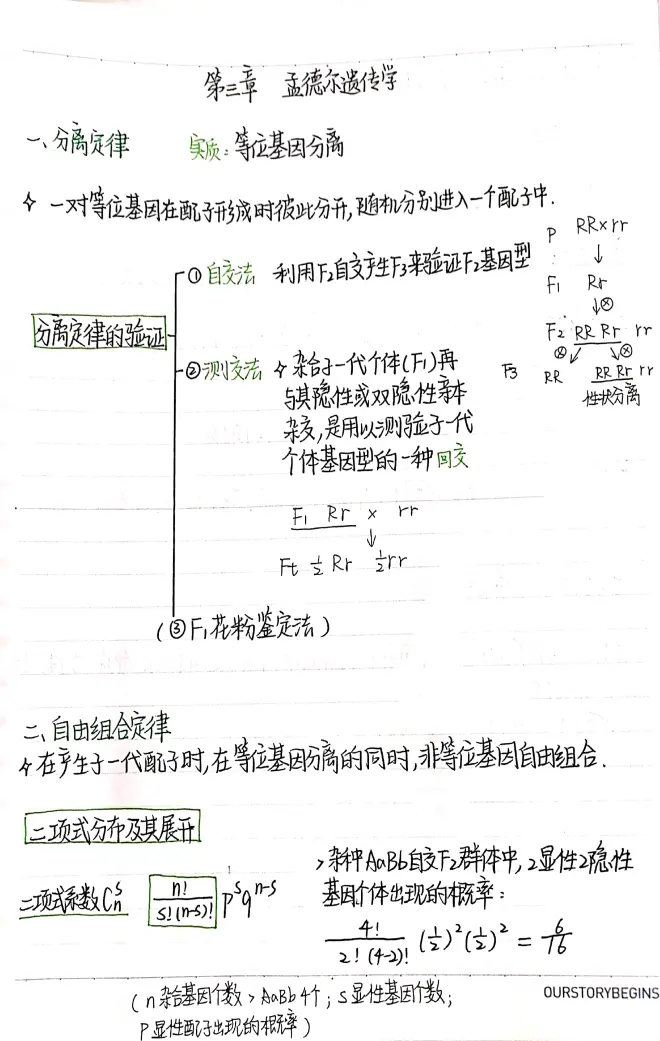 第三章 孟德尔遗传学
一、分离定律 实质：等位基因分离
一对等位基因在配子形成时彼此分开，随机分别进入一个配子中.
分离定律的验证
①自交法 利用F₂自交产生F₃来验证F₂基因型
P RR×rr
↓
F₁ Rr
↓⊗
F₂ RR Rr rr
⊗↙ ↘⊗
F₃ RR RR Rr rr
性状分离
②测交法 杂合子一代个体(F₁)再
与其隐性或双隐性亲本
杂交,是用以测验子一代
个体基因型的一种回交
F₁ Rr × rr
↓
Ft ½Rr ½rr
(③F₁花粉鉴定法)
二、自由组合定律
在产生子一代配子时,在等位基因分离的同时,非等位基因自由组合.
二项式分布及其展开
二项式系数Cₙˢ n!/s!(n-s)! pˢqⁿ⁻ˢ
>杂种AaBb自交F₂群体中,2显性2隐性
基因个体出现的概率:
4!/2!(4-2)! (½)²(½)² = 6/16
(n杂合基因个数>AaBb 4个;s显性基因个数;
P显性配子出现的概率)
OURSTORYBEGINS